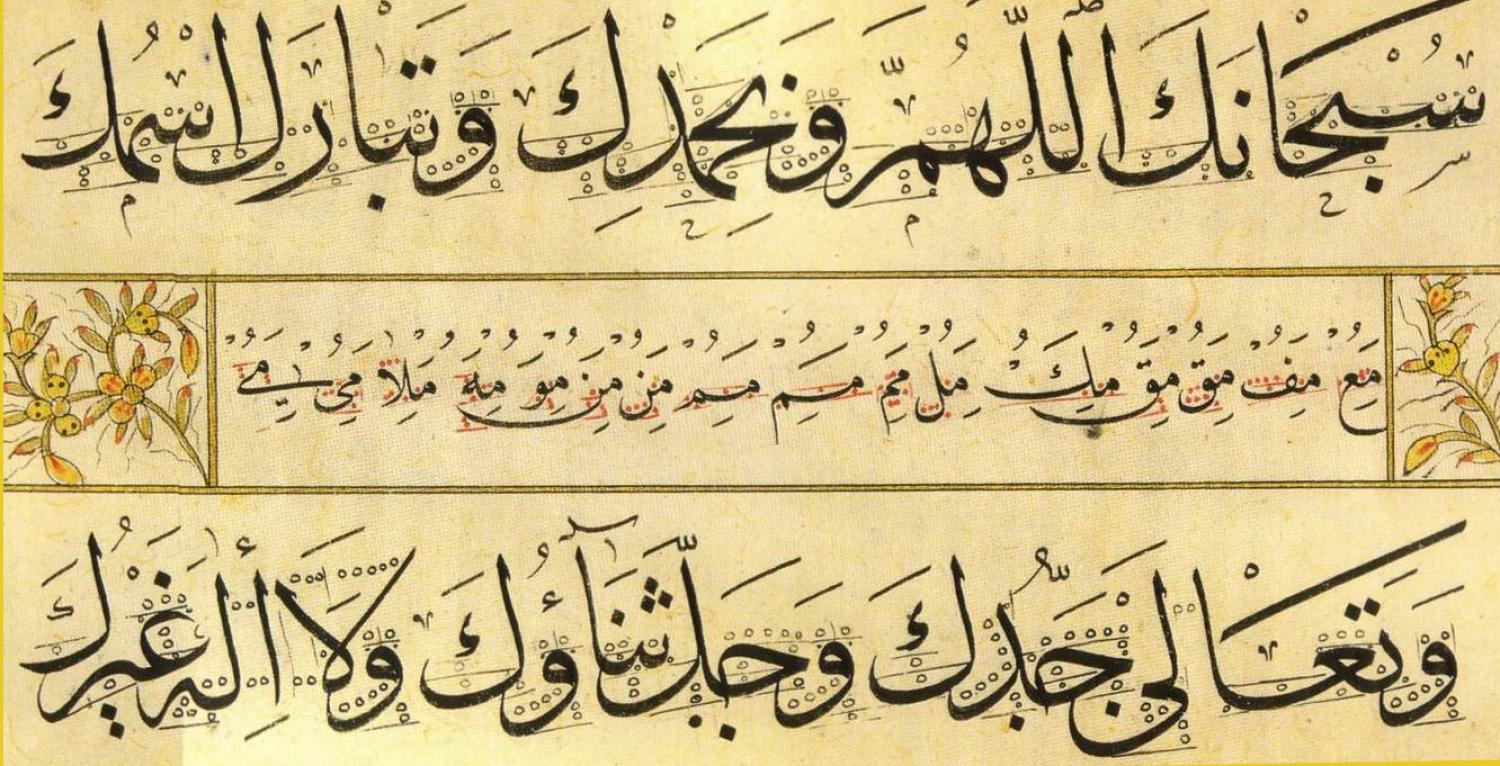 سُبْحَانَكَ اللَّهُمَّ وَبِحَمْدِكَ وَتَبَارَكَ اسْمُكَ
مع مف مق مق مك مل مم مم مم من من مو مه ملا مى مے
وَتَعَالَى جَدُّكَ وَجَلَّ ثَنَاؤُكَ وَلَا إِلَهَ غَيْرُكَ